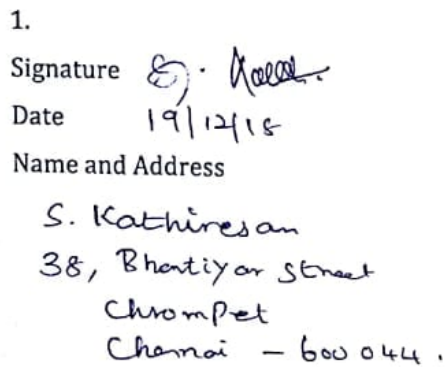 1.
Signature
Date 19/12/18
Name and Address
S. Kathiresan
38, Bhartiyar Street
Chrompet
Chennai - 600 044.